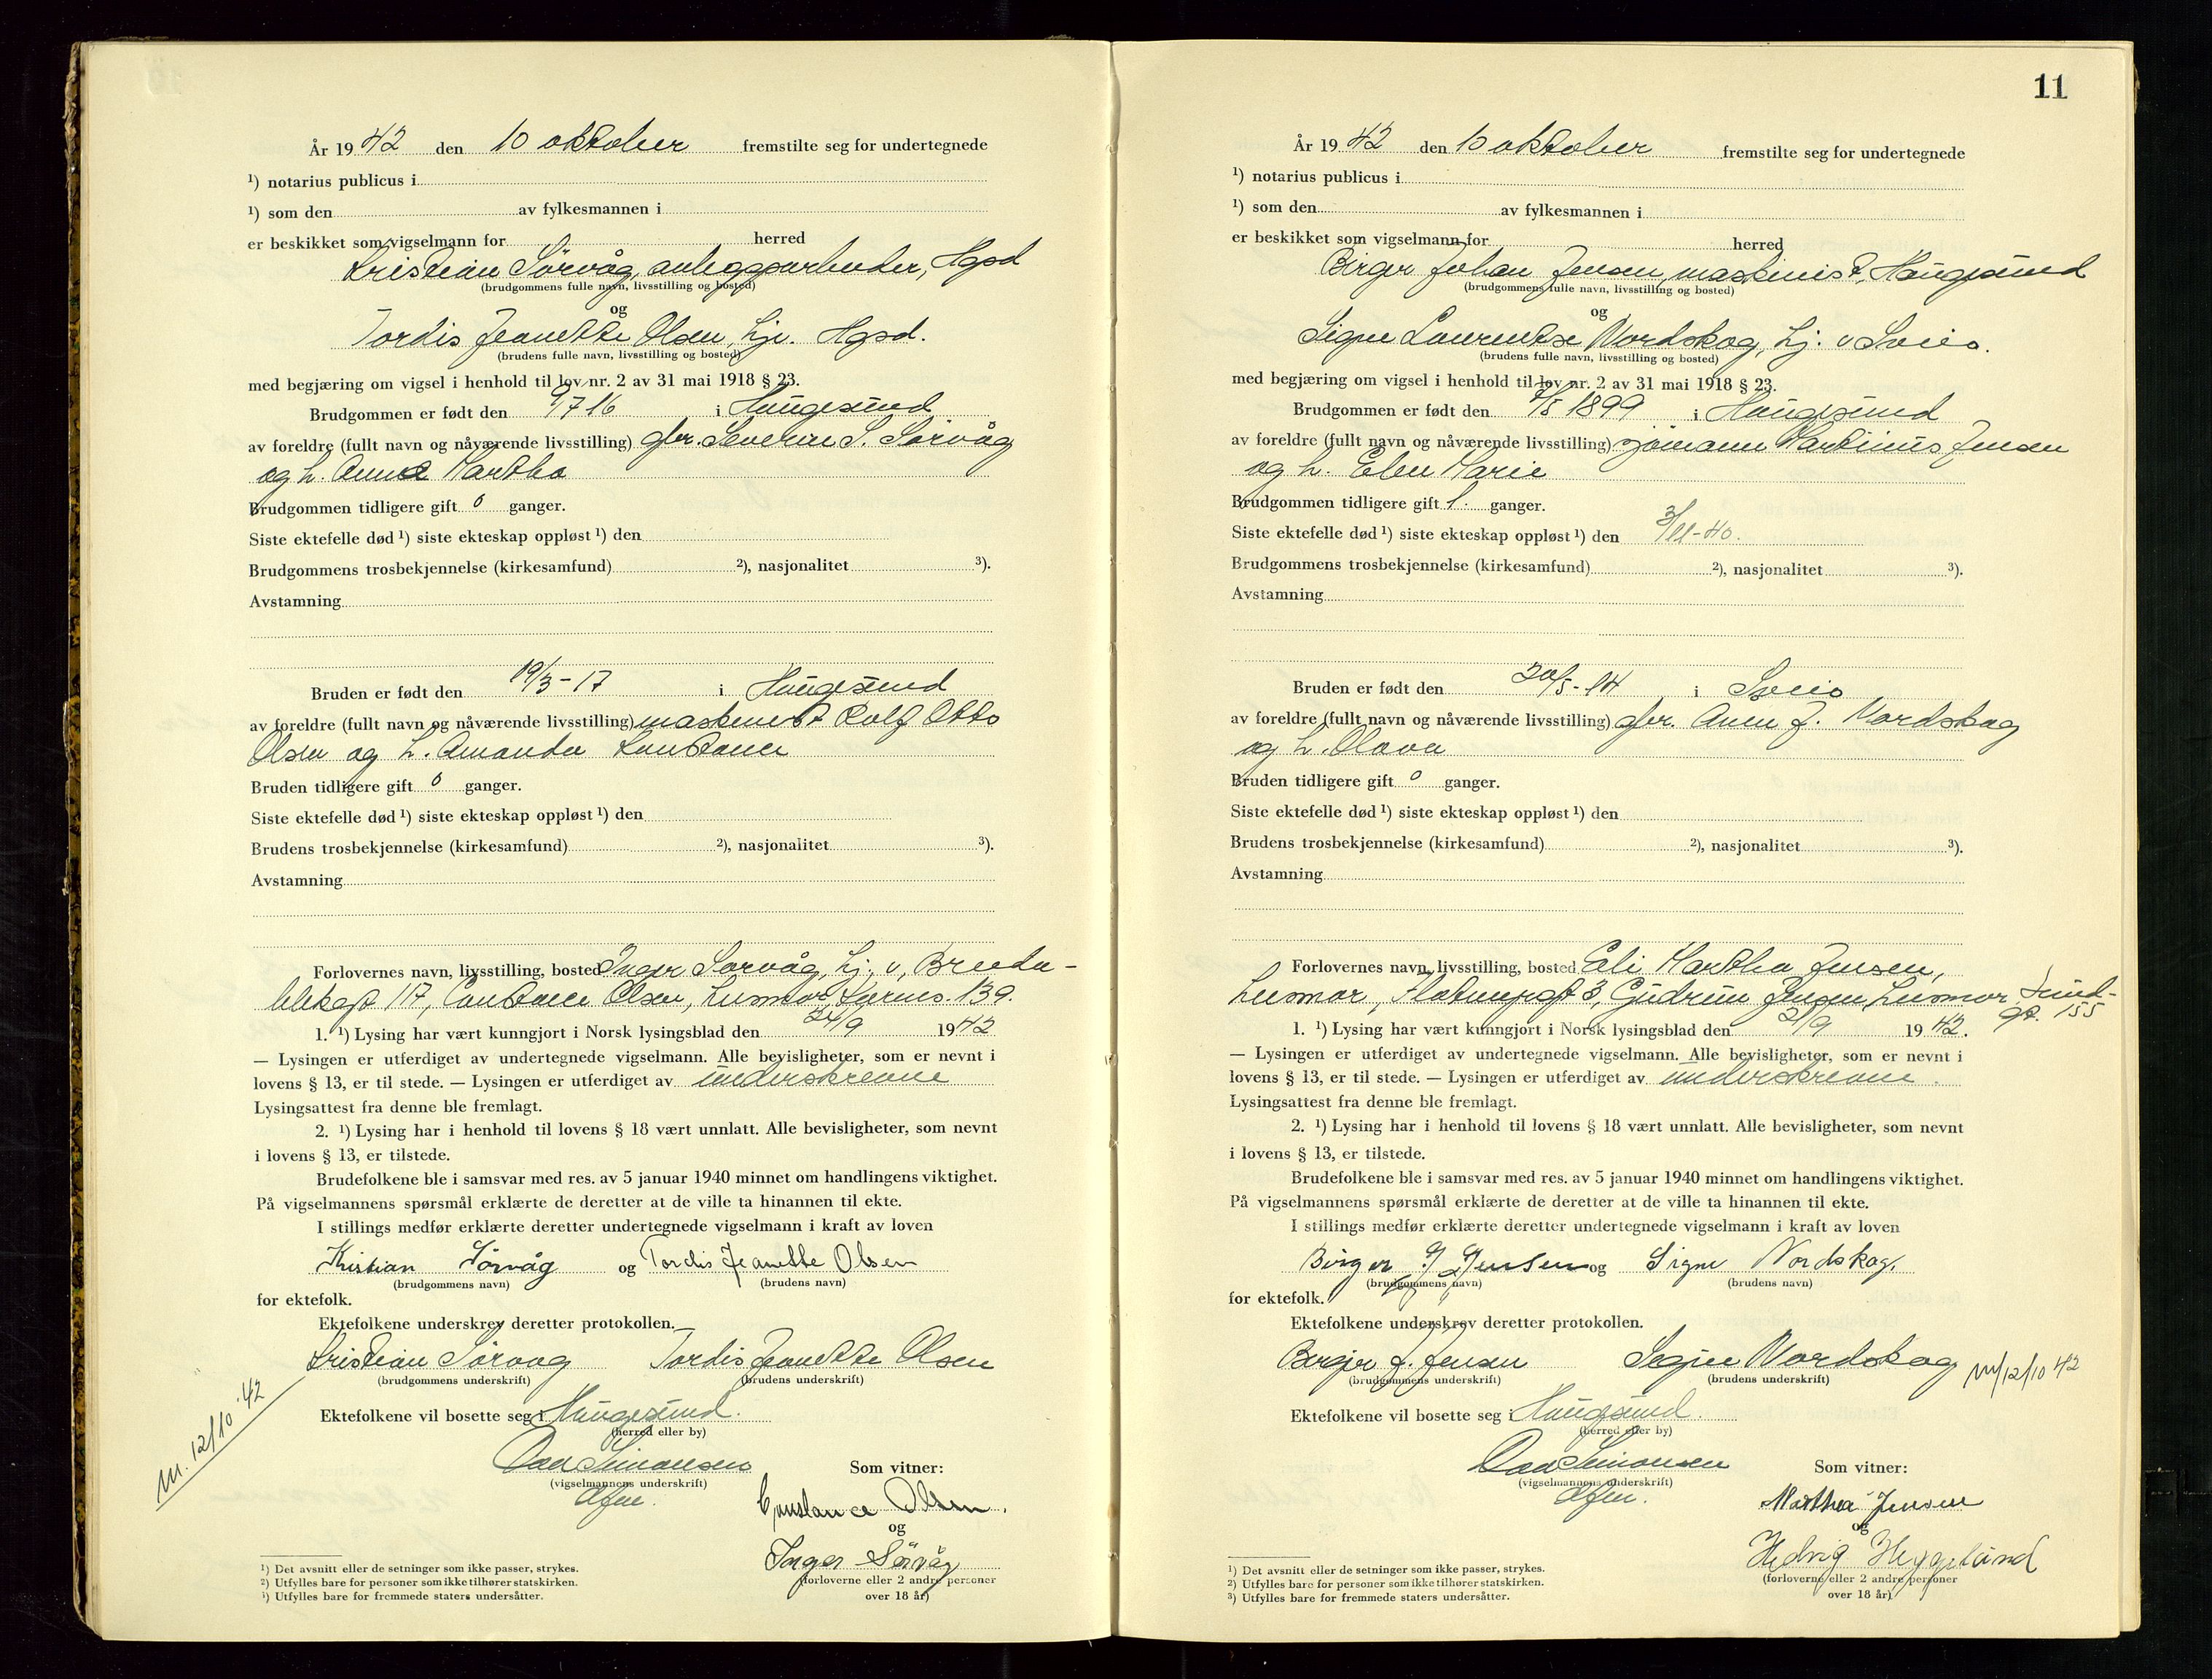 År 1942 den 10 oktober fremstilte seg for undertegnede
¹) notarius publicus i
¹) som den av fylkesmannen i
er beskikket som vigselmann for herred
Kristian Sörvåg, anleggsarbeider, Hgsd
(brudgommens fulle navn, livsstilling og bosted)
og
Tordis Jeanette Olsen, hj. Hgsd.
(brudens fulle navn, livsstilling og bosted)
med begjæring om vigsel i henhold til lov nr. 2 av 31 mai 1918 § 23.
Brudgommen er født den 9/7 16 i Haugesund
av foreldre (fullt navn og nåværende livsstilling) gbr. Severin S. Sörvåg
og h. Anna Martha
Brudgommen tidligere gift 0 ganger.
Siste ektefelle død ¹) siste ekteskap oppløst ¹) den
Brudgommens trosbekjennelse (kirkesamfund) ²), nasjonalitet ³).
Avstamning
Bruden er født den 19/3-17 i Haugesund
av foreldre (fullt navn og nåværende livsstilling) maskinist Rolf Otto
Olsen og h. Amanda Constance
Bruden tidligere gift 0 ganger.
Siste ektefelle død ¹) siste ekteskap oppløst ¹) den
Brudens trosbekjennelse (kirkesamfund) ²), nasjonalitet ³).
Avstamning
Forlovernes navn, livsstilling, bosted Inger Sørvåg, hj. v,
117, Constance Olsen, husmor, 139.
1. ¹) Lysing har vært kunngjort i Norsk lysingsblad den 24/9 1942
— Lysingen er utferdiget av undertegnede vigselmann. Alle bevisligheter, som er nevnt i
lovens § 13, er til stede. — Lysingen er utferdiget av underskrevne
Lysingsattest fra denne ble fremlagt.
2. ¹) Lysing har i henhold til lovens § 18 vært unnlatt. Alle bevisligheter, som nevnt
i lovens § 13, er tilstede.
Brudefolkene ble i samsvar med res. av 5 januar 1940 minnet om handlingens viktighet.
På vigselmannens spørsmål erklærte de deretter at de ville ta hinannen til ekte.
I stillings medfør erklærte deretter undertegnede vigselmann i kraft av loven
Kristian Sörvåg og Tordis Jeanette Olsen
(brudgommens navn) (brudens navn)
for ektefolk.
Ektefolkene underskrev deretter protokollen.
Kristian Sörvåg Tordis Jeanette Olsen
(brudgommens underskrift) (brudens underskrift)
Ektefolkene vil bosette seg i Haugesund.
(herred eller by)
m. 12/10 '42
Simonsen
(vigselmannens underskrift)
Som vitner:
Constance Olsen.
og
Inger Sörvåg
(forloverne eller 2 andre personer
over 18 år)
¹) Det avsnitt eller de setninger som ikke passer, strykes.
²) Utfylles bare for personer som ikke tilhører statskirken.
³) Utfylles bare for fremmede staters undersåtter.
11
År 1942 den 10 oktober fremstilte seg for undertegnede
¹) notarius publicus i
¹) som den av fylkesmannen i
er beskikket som vigselmann for herred
Birger Johan Jensen, maskinist, Haugesund
(brudgommens fulle navn, livsstilling og bosted)
og
Signe Lourentse Nordskog, hj. v Sveio.
(brudens fulle navn, livsstilling og bosted)
med begjæring om vigsel i henhold til lov nr. 2 av 31 mai 1918 § 23.
Brudgommen er født den 1899 i Haugesund
av foreldre (fullt navn og nåværende livsstilling) sjömann Martinus Jensen
og h. Elen Marie
Brudgommen tidligere gift 1. ganger.
Siste ektefelle død ¹) siste ekteskap oppløst ¹) den 3/11-40.
Brudgommens trosbekjennelse (kirkesamfund) ²), nasjonalitet ³).
Avstamning
Bruden er født den 20/5-14 i Sveio
av foreldre (fullt navn og nåværende livsstilling) gbr. J. Nordskog
og h. Olava
Bruden tidligere gift 0 ganger.
Siste ektefelle død ¹) siste ekteskap oppløst ¹) den
Brudens trosbekjennelse (kirkesamfund) ²), nasjonalitet ³).
Avstamning
Forlovernes navn, livsstilling, bosted Eli Martha Jensen,
husmor, 3, Gudrun Jensen, husmor, Sund-
gt. 155
1. ¹) Lysing har vært kunngjort i Norsk lysingsblad den 21/9 1942.
— Lysingen er utferdiget av undertegnede vigselmann. Alle bevisligheter, som er nevnt i
lovens § 13, er til stede. — Lysingen er utferdiget av underskrevne.
Lysingsattest fra denne ble fremlagt.
2. ¹) Lysing har i henhold til lovens § 18 vært unnlatt. Alle bevisligheter, som nevnt
i lovens § 13, er tilstede.
Brudefolkene ble i samsvar med res. av 5 januar 1940 minnet om handlingens viktighet.
På vigselmannens spørsmål erklærte de deretter at de ville ta hinannen til ekte.
I stillings medfør erklærte deretter undertegnede vigselmann i kraft av loven
Birger J Jensen og Signe Nordskog.
(brudgommens navn) (brudens navn)
for ektefolk.
Ektefolkene underskrev deretter protokollen.
Birger J. Jensen Signe Nordskog m/12/10 42
(brudgommens underskrift) (brudens underskrift)
Ektefolkene vil bosette seg i Haugesund.
(herred eller by)
Simonsen
(vigselmannens underskrift)
Som vitner:
Martha Jensen
og
Hedvig Heggelund
(forloverne eller 2 andre personer
over 18 år)
¹) Det avsnitt eller de setninger som ikke passer, strykes.
²) Utfylles bare for personer som ikke tilhører statskirken.
³) Utfylles bare for fremmede staters undersåtter.